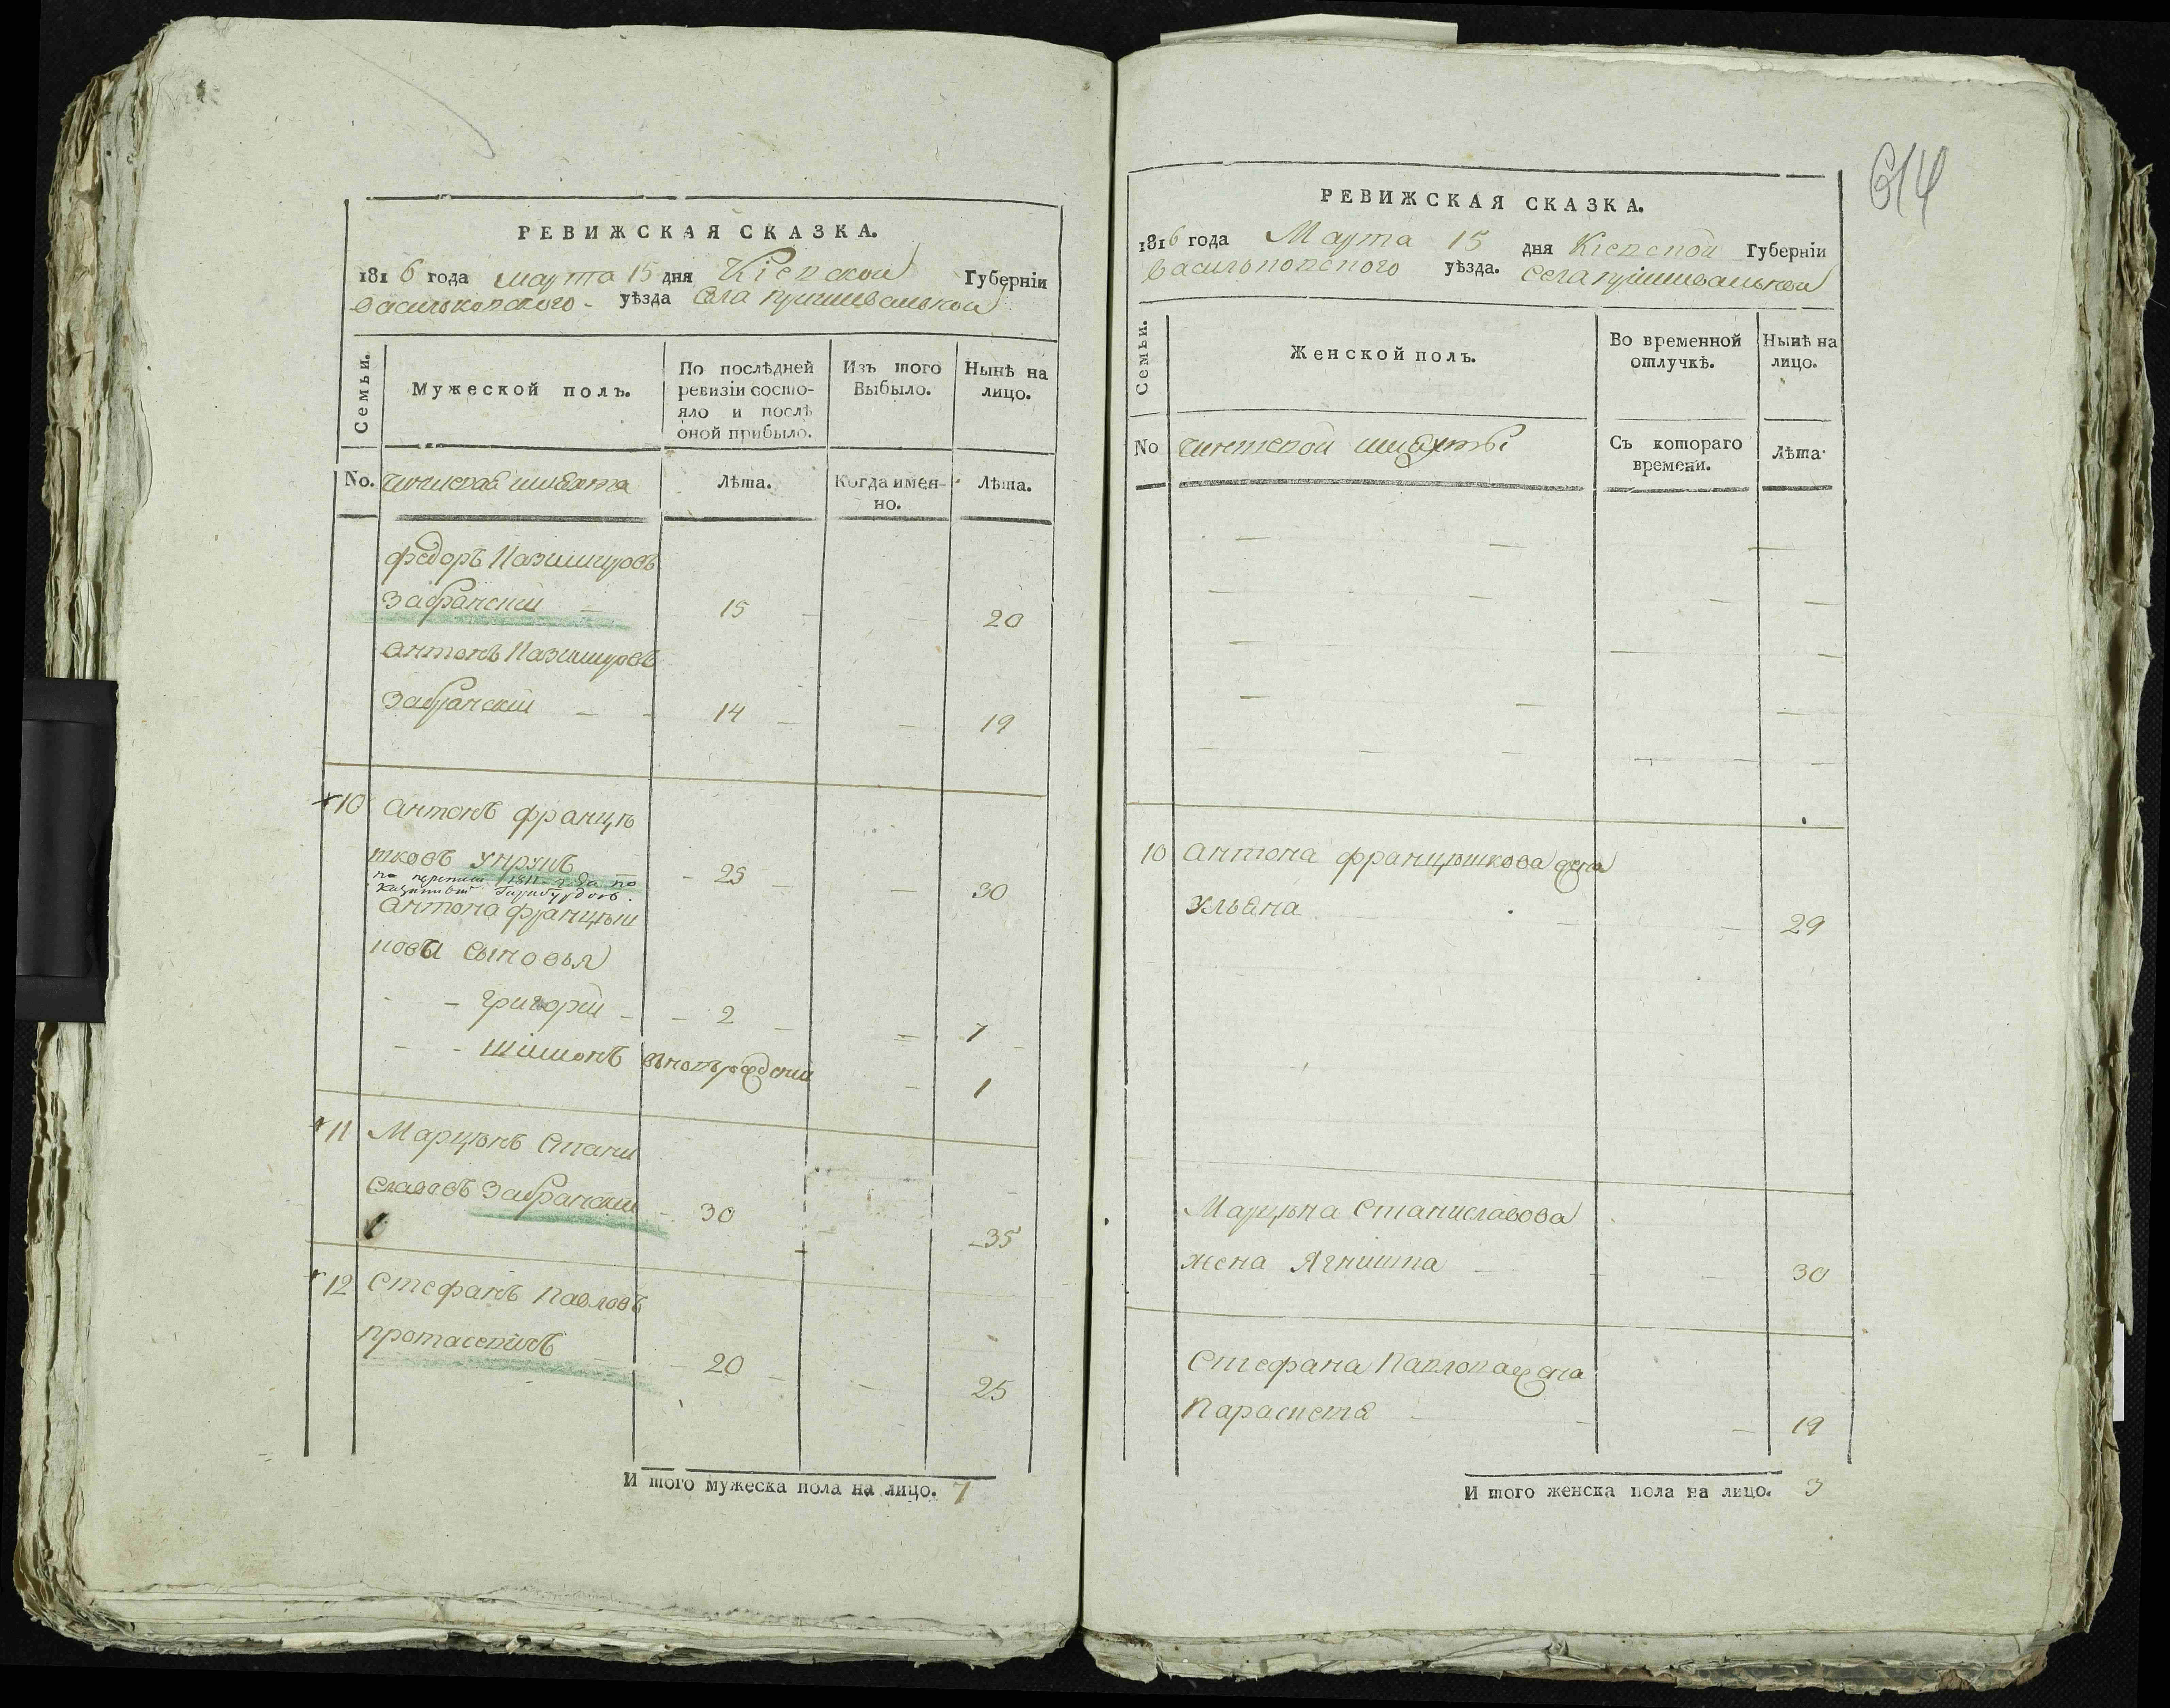 РЕВИЖСКАЯ СКАЗКА.
1816 года Марта 15 дня Кіевской Губерніи
Васильковского уѣзда Села
Семьи.
Мужеской полъ.
По послѣдней ревизіи состояло и послѣ оной прибыло.
Изъ того Выбыло.
Нынѣ на лицо.
No. Чиншовая шляхта
Лѣта.
Когда именно.
Лѣта.
Федоръ Казимировъ
Забранский 15 20
Антонъ Казимировъ
Забранский 14 19
10 Антонъ Францѣ
шковъ 25 30
по переписи 1811 года по
Антона Францѣш
ковы Сыновья
Григорій 2 7
Шимонъ 1
11 Марцѣнъ Стани
славовъ Забранский 30 35
12 Стефанъ Павловъ
Протасевичъ 20 25
И того мужеска пола на лицо. 7
614
РЕВИЖСКАЯ СКАЗКА.
1816 года Марта 15 дня Кіевской Губерніи
Васильковского уѣзда. Села
Семьи.
Женской полъ.
Во временной отлучкѣ.
Нынѣ на лицо.
No шляхты
Съ котораго времени.
Лѣта.
10 Антона Францѣшкова жена
Ульяна 29
Марцѣна Станиславова
жена Ягнишка 30
Стефана Павлова жена
Параскета 19
И того женска пола на лицо. 3